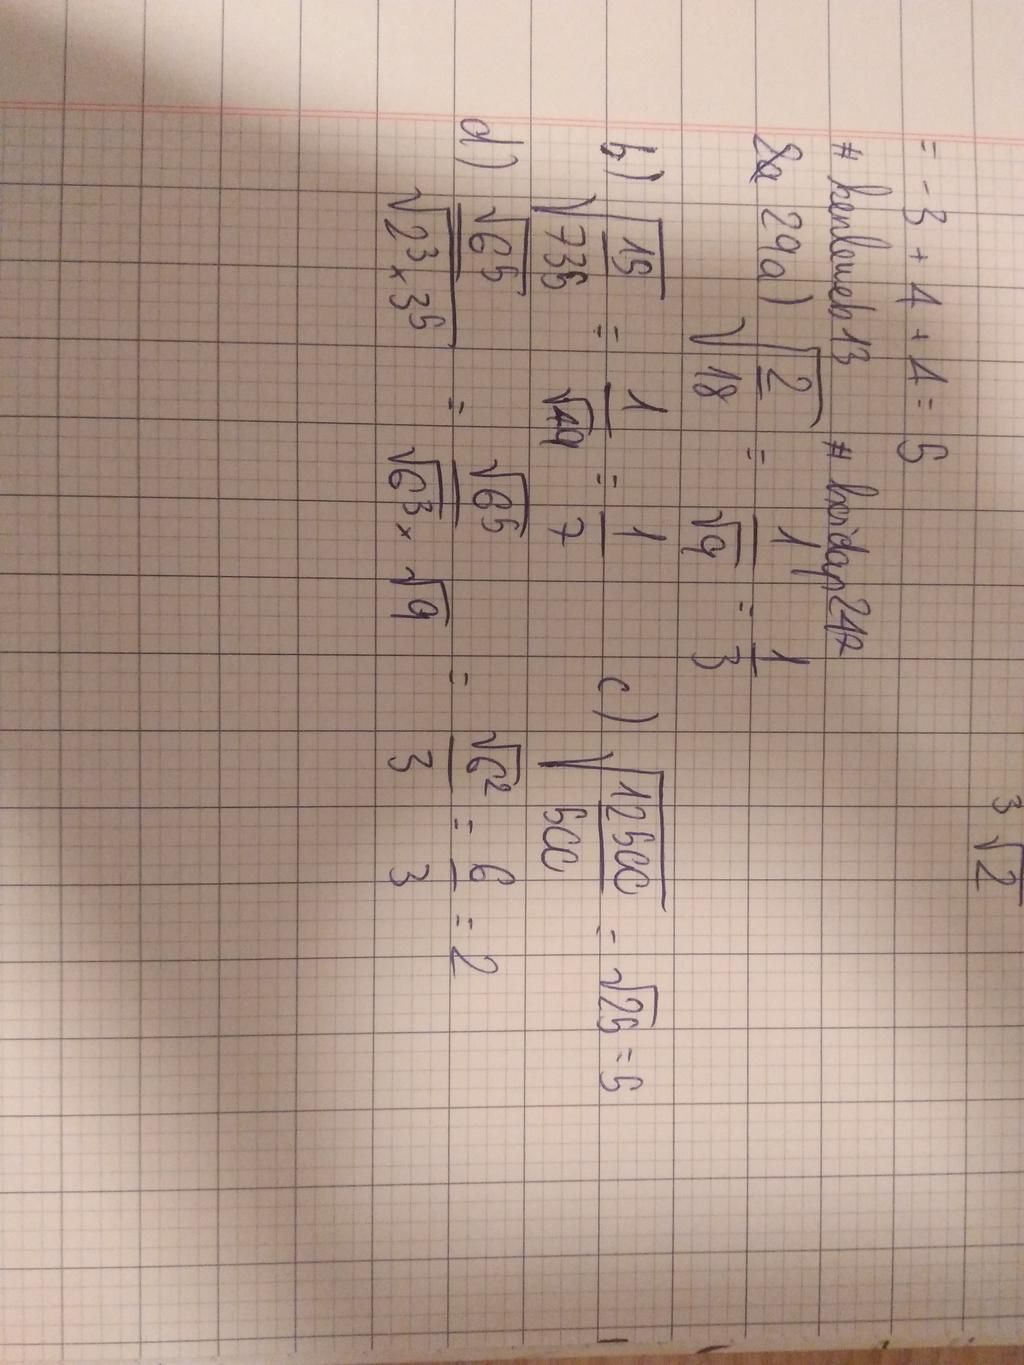 3√2
= -3 + 4 + 4 = 5
# henloweb13 # hoidap247
29a) √(2/18) = 1/√9 = 1/3
b) √(15/735) = 1/√49 = 1/7 c) √(12500/500) = √25 = 5
d) √6⁵/√(2³ × 3⁵) = √6⁵/(√6³ × √9) = √6²/3 = 6/3 = 2